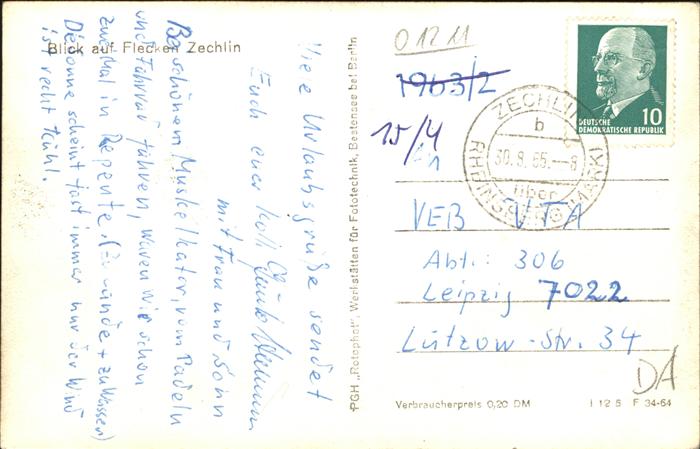 Blick auf Flecken Zechlin
Viele Urlaubsgrüße sendet
Euch euer Koll.
mit Frau und Sohn
Bei schönem Muskelkater, vom Paddeln
und Fahrrad fahren, waren wir schon
zweimal in Repente. (zu Lande + zu Wasser)
Die Sonne scheint fast immer nur der Wind
ist recht kühl.
PGH „Rotophot", Werkstätten für Fototechnik, Bestensee bei Berlin
01211
1963/2
15/4
ZECHLIN
b
30.8.65.-8
über
RHEINSBERG (MARK)
10
DEUTSCHE
DEMOKRATISCHE REPUBLIK
An
VEB VTA
Abt.: 306
Leipzig 7022
Lützow-Str. 34
DA
Verbraucherpreis 0,20 DM I 12 5 F 34-64